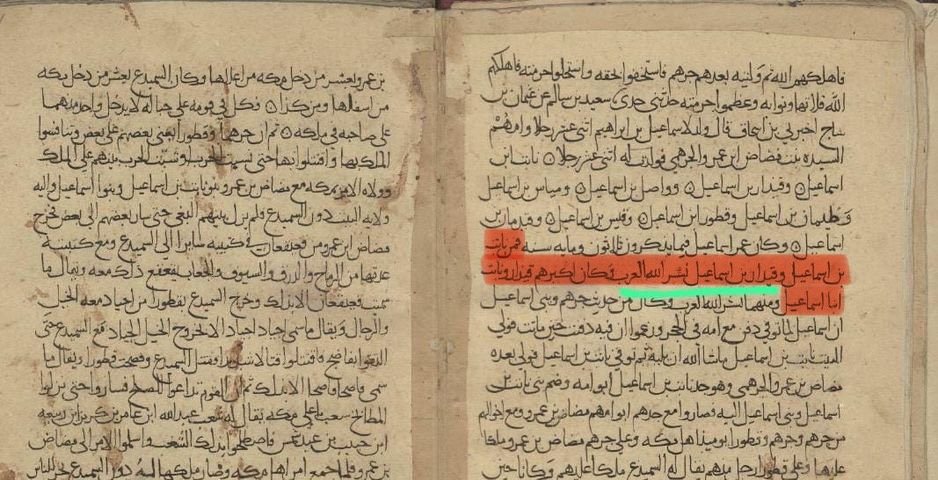 فاهلكهم الله ثم وليته بعدهم جرهم فاستخفوا بحقه واستحلوا حرمته فاهلكهم
الله فلا تهاونوا به وعظموا حرمته حدثني جدي سعيد بن سالم عن عثمان بن
ساج اخبرني بن اسحاق قال ولد لاسماعيل بن ابراهيم اثني عشر رجلا وامهم
السيده بنت مضاض ابن عمرو الجرهمي فولدت له اثني عشر رجلا نابت بن
اسماعيل وقيدار بن اسماعيل وواصل بن اسماعيل ومياس بن اسماعيل
بن اسماعيل وقطورا ابن اسماعيل وقيس بن اسماعيل بن
اسماعيل وكان عمر اسماعيل فيما يذكرون ثلاثون ومايه سنه فمن نابت
بن اسماعيل وقيدار بن اسماعيل نشر الله العرب وكان اكبرهم قيدار ونابت
ابنا اسماعيل ومنهما نشر الله العرب وكان من حديث جرهم وبني اسماعيل
ان اسماعيل لما توفي دفن مع امه في الحجر وزعموا ان فيه دفنت حين ماتت فولي
البيت نابت بن اسماعيل ماشا الله ان يليه ثم توفي نابت بن اسماعيل فولي بعده
مضاض بن عمرو الجرهمي وهو جد نابت بن اسماعيل ابو امه وضم بني نابت بن
اسماعيل وبني اسماعيل اليه فصاروا مع جدهم ابو امهم مضاض بن عمرو ومع اخوالهم
من جرهم وجرهم وقطورا يوميذ اهل مكه وعلي جرهم مضاض بن عمرو ملكا
عليها وعلي قطورا رجل منهم يقال له السميدع ملكا عليهم وكانا حين
بن عمرو يعشر من دخل مكه من اعلاها وكان السميدع يعشر من دخل مكه
من اسفلها ومن كدا وكل في قومه علي حياله لا يدخل واحد منهما
علي صاحبه في ملكه ثم ان جرهما وقطورا بغي بعضهم علي بعض وتنافسوا
الملك بها واقتتلوا بها حتي نشبت الحرب وشبت الحرب بينهم علي الملك
وولاه الامر بمكه مع مضاض بن عمرو بنو نابت بن اسماعيل وبنوا اسماعيل واليه
ولايه البيت دون السميدع فلم يزل بينهم البغي حتي سار بعضهم الي بعض فخرج
مضاض ابن عمرو من قعيقعان في كتيبه سايرا الي السميدع ومع كتيبته
عدتها من الرماح والدرق والسيوف والجعاب يقعقع ذلك معه ويقال ما
سميت قعيقعان الا بذلك وخرج السميدع بقطورا من اجياد معه الخيل
والرجال ويقال ما سمي اجياد اجيادا الا لخروج الخيل الجياد مع السميدع حتي
التقوا بفاضح فاقتتلوا قتالا شديدا فقتل السميدع وفضحت قطورا ويقال ما
سمي فاضح فاضحا الا بذلك ثم ان القوم تداعوا للصلح فساروا حتي نزلوا
المطابخ شعب باعلي مكه يقال له شعب عبد الله ابن عامر بن كريز ابن ربيعه
ابن حبيب بن عبد شمس فاصطلحوا بذلك الشعب واسلموا الامر الي مضاض
بن عمرو فلما جمع امر اهل مكه وصار ملكها له دون السميدع نحر للناس